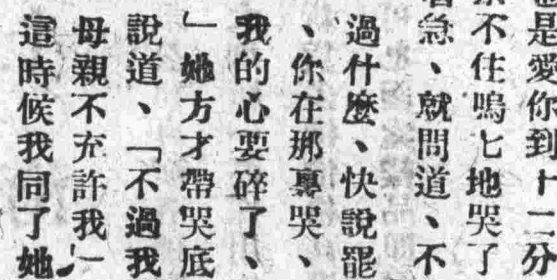 是愛你到十二分
不住嗚匕地哭了
急、就問道、不
過什麽、快說罷
、你在那裏哭、
我的心要碎了、
」她方才帶哭底
說道、「不過我
母親不充許我」
這時候我同了她